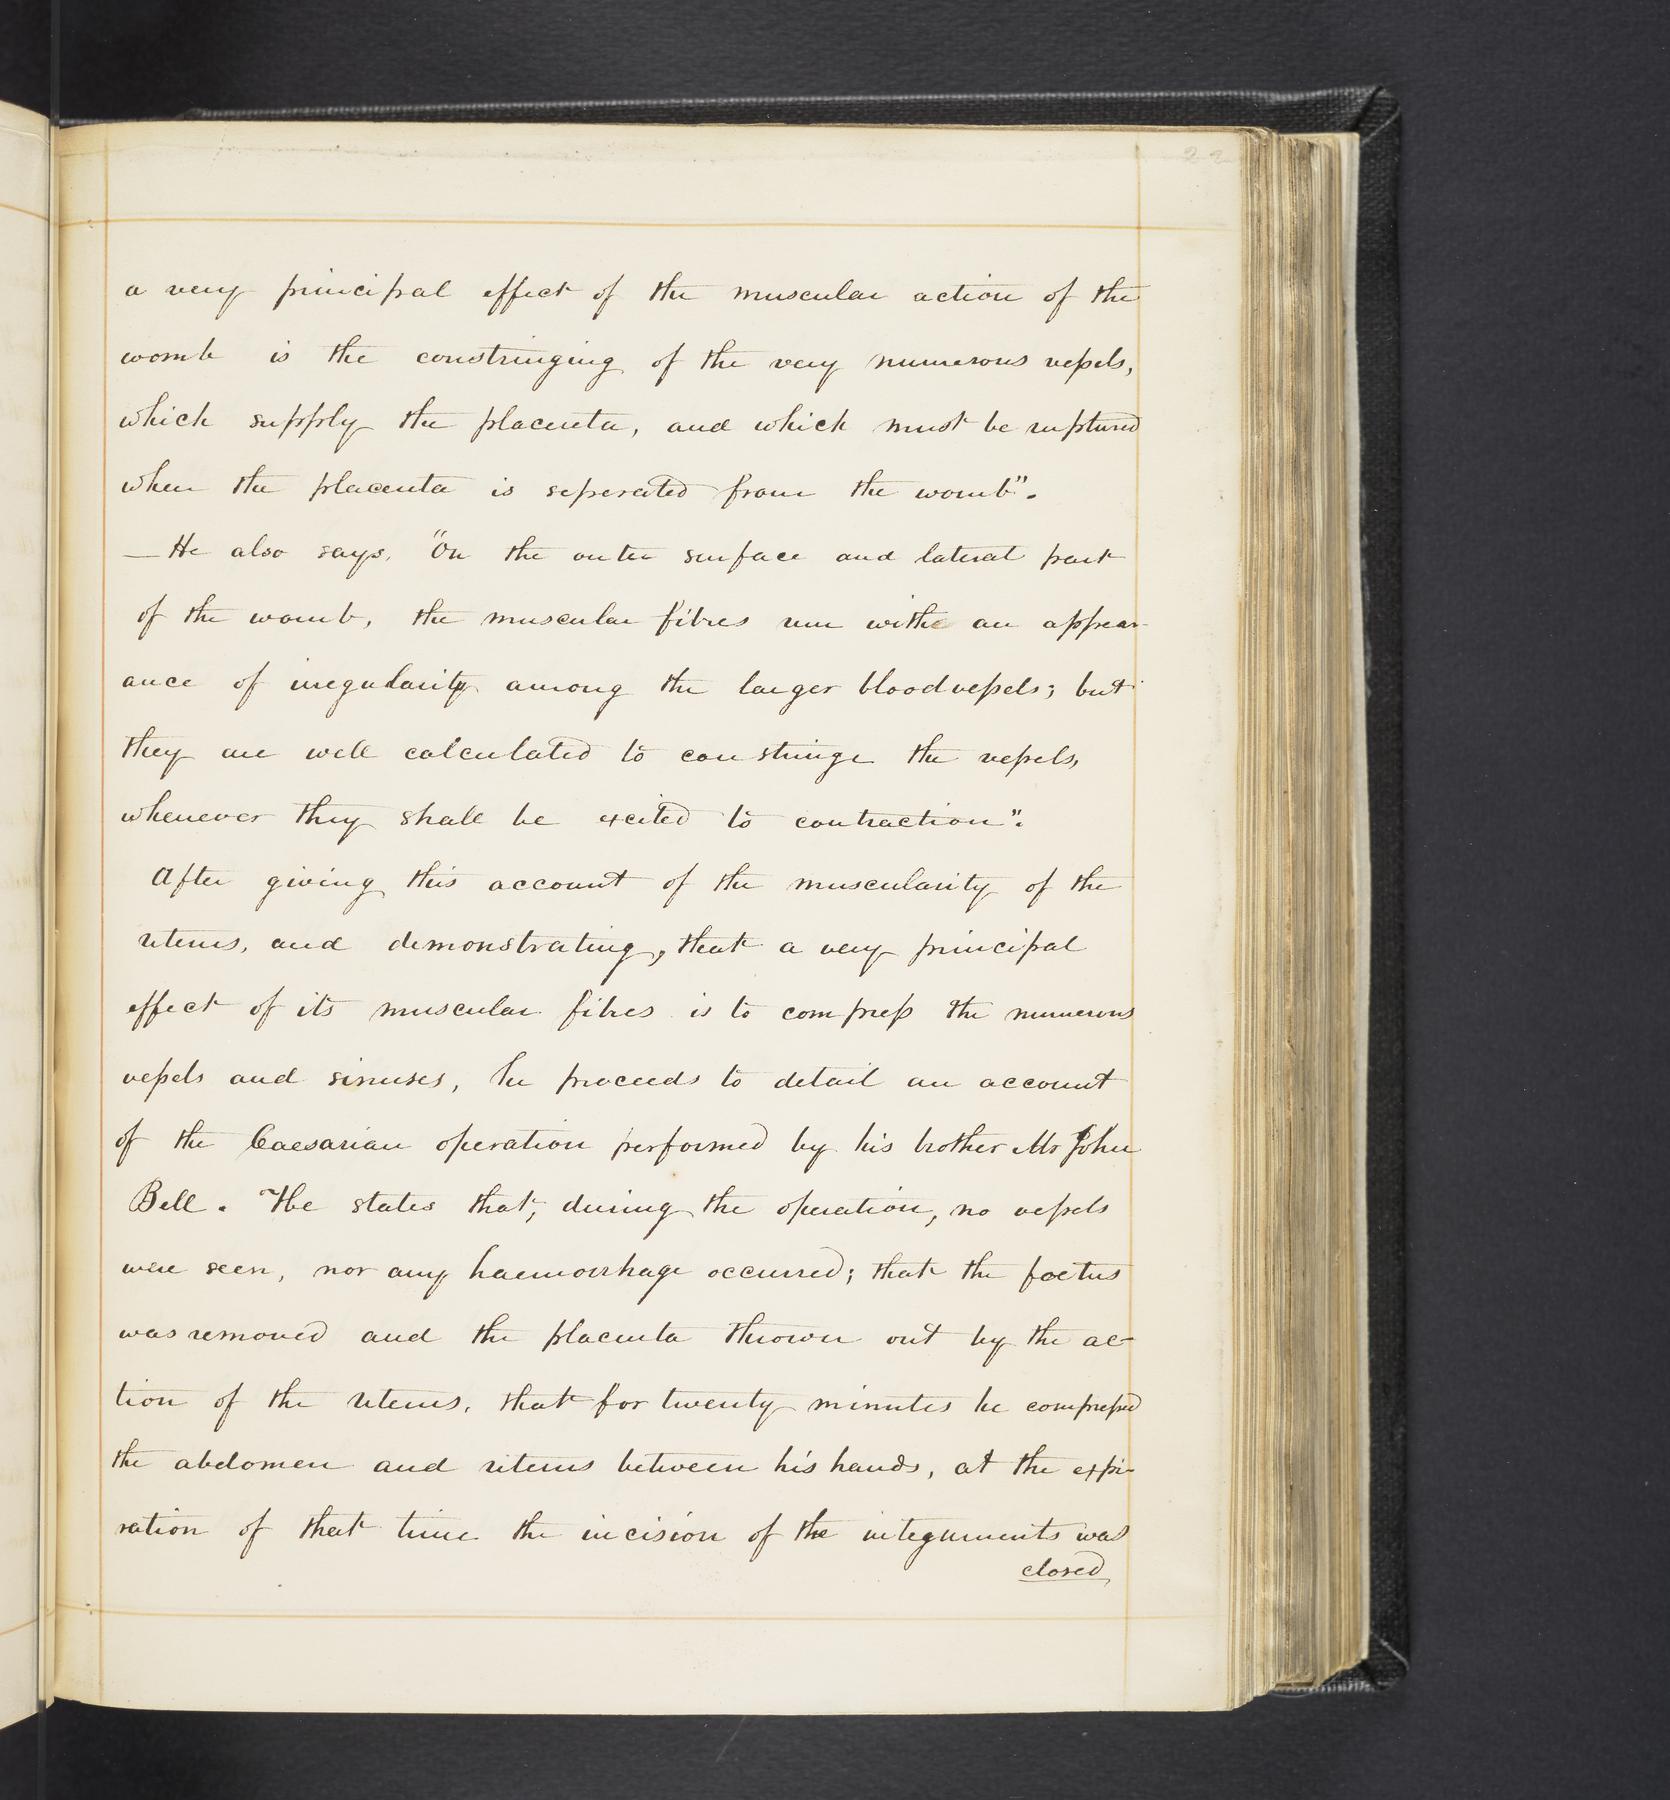 22
a very principal effect of the muscular action of the
womb is the constringing of the very numerous vessels,
which supply the placenta, and which must be ruptured
when the placenta is seperated from the womb".
— He also says, "On the outer surface and lateral part
of the womb, the muscular fibres run with an appear-
ance of irregularity among the larger bloodvessels; but
they are well calculated to constringe the vessels,
whenever they shall be excited to contraction".
After giving this account of the muscularity of the
uterus, and demonstrating, that a very principal
effect of its muscular fibres is to compress the numerous
vessels and sinuses, he proceeds to detail an account
of the Caesarian operation performed by his brother Mr John
Bell. He states that, during the operation, no vessels
were seen, nor any haemorrhage occurred; that the foetus
was removed and the placenta thrown out by the ac-
tion of the uterus, that for twenty minutes he compressed
the abdomen and uterus between his hands, at the expi-
ration of that time the incision of the integuments was
closed